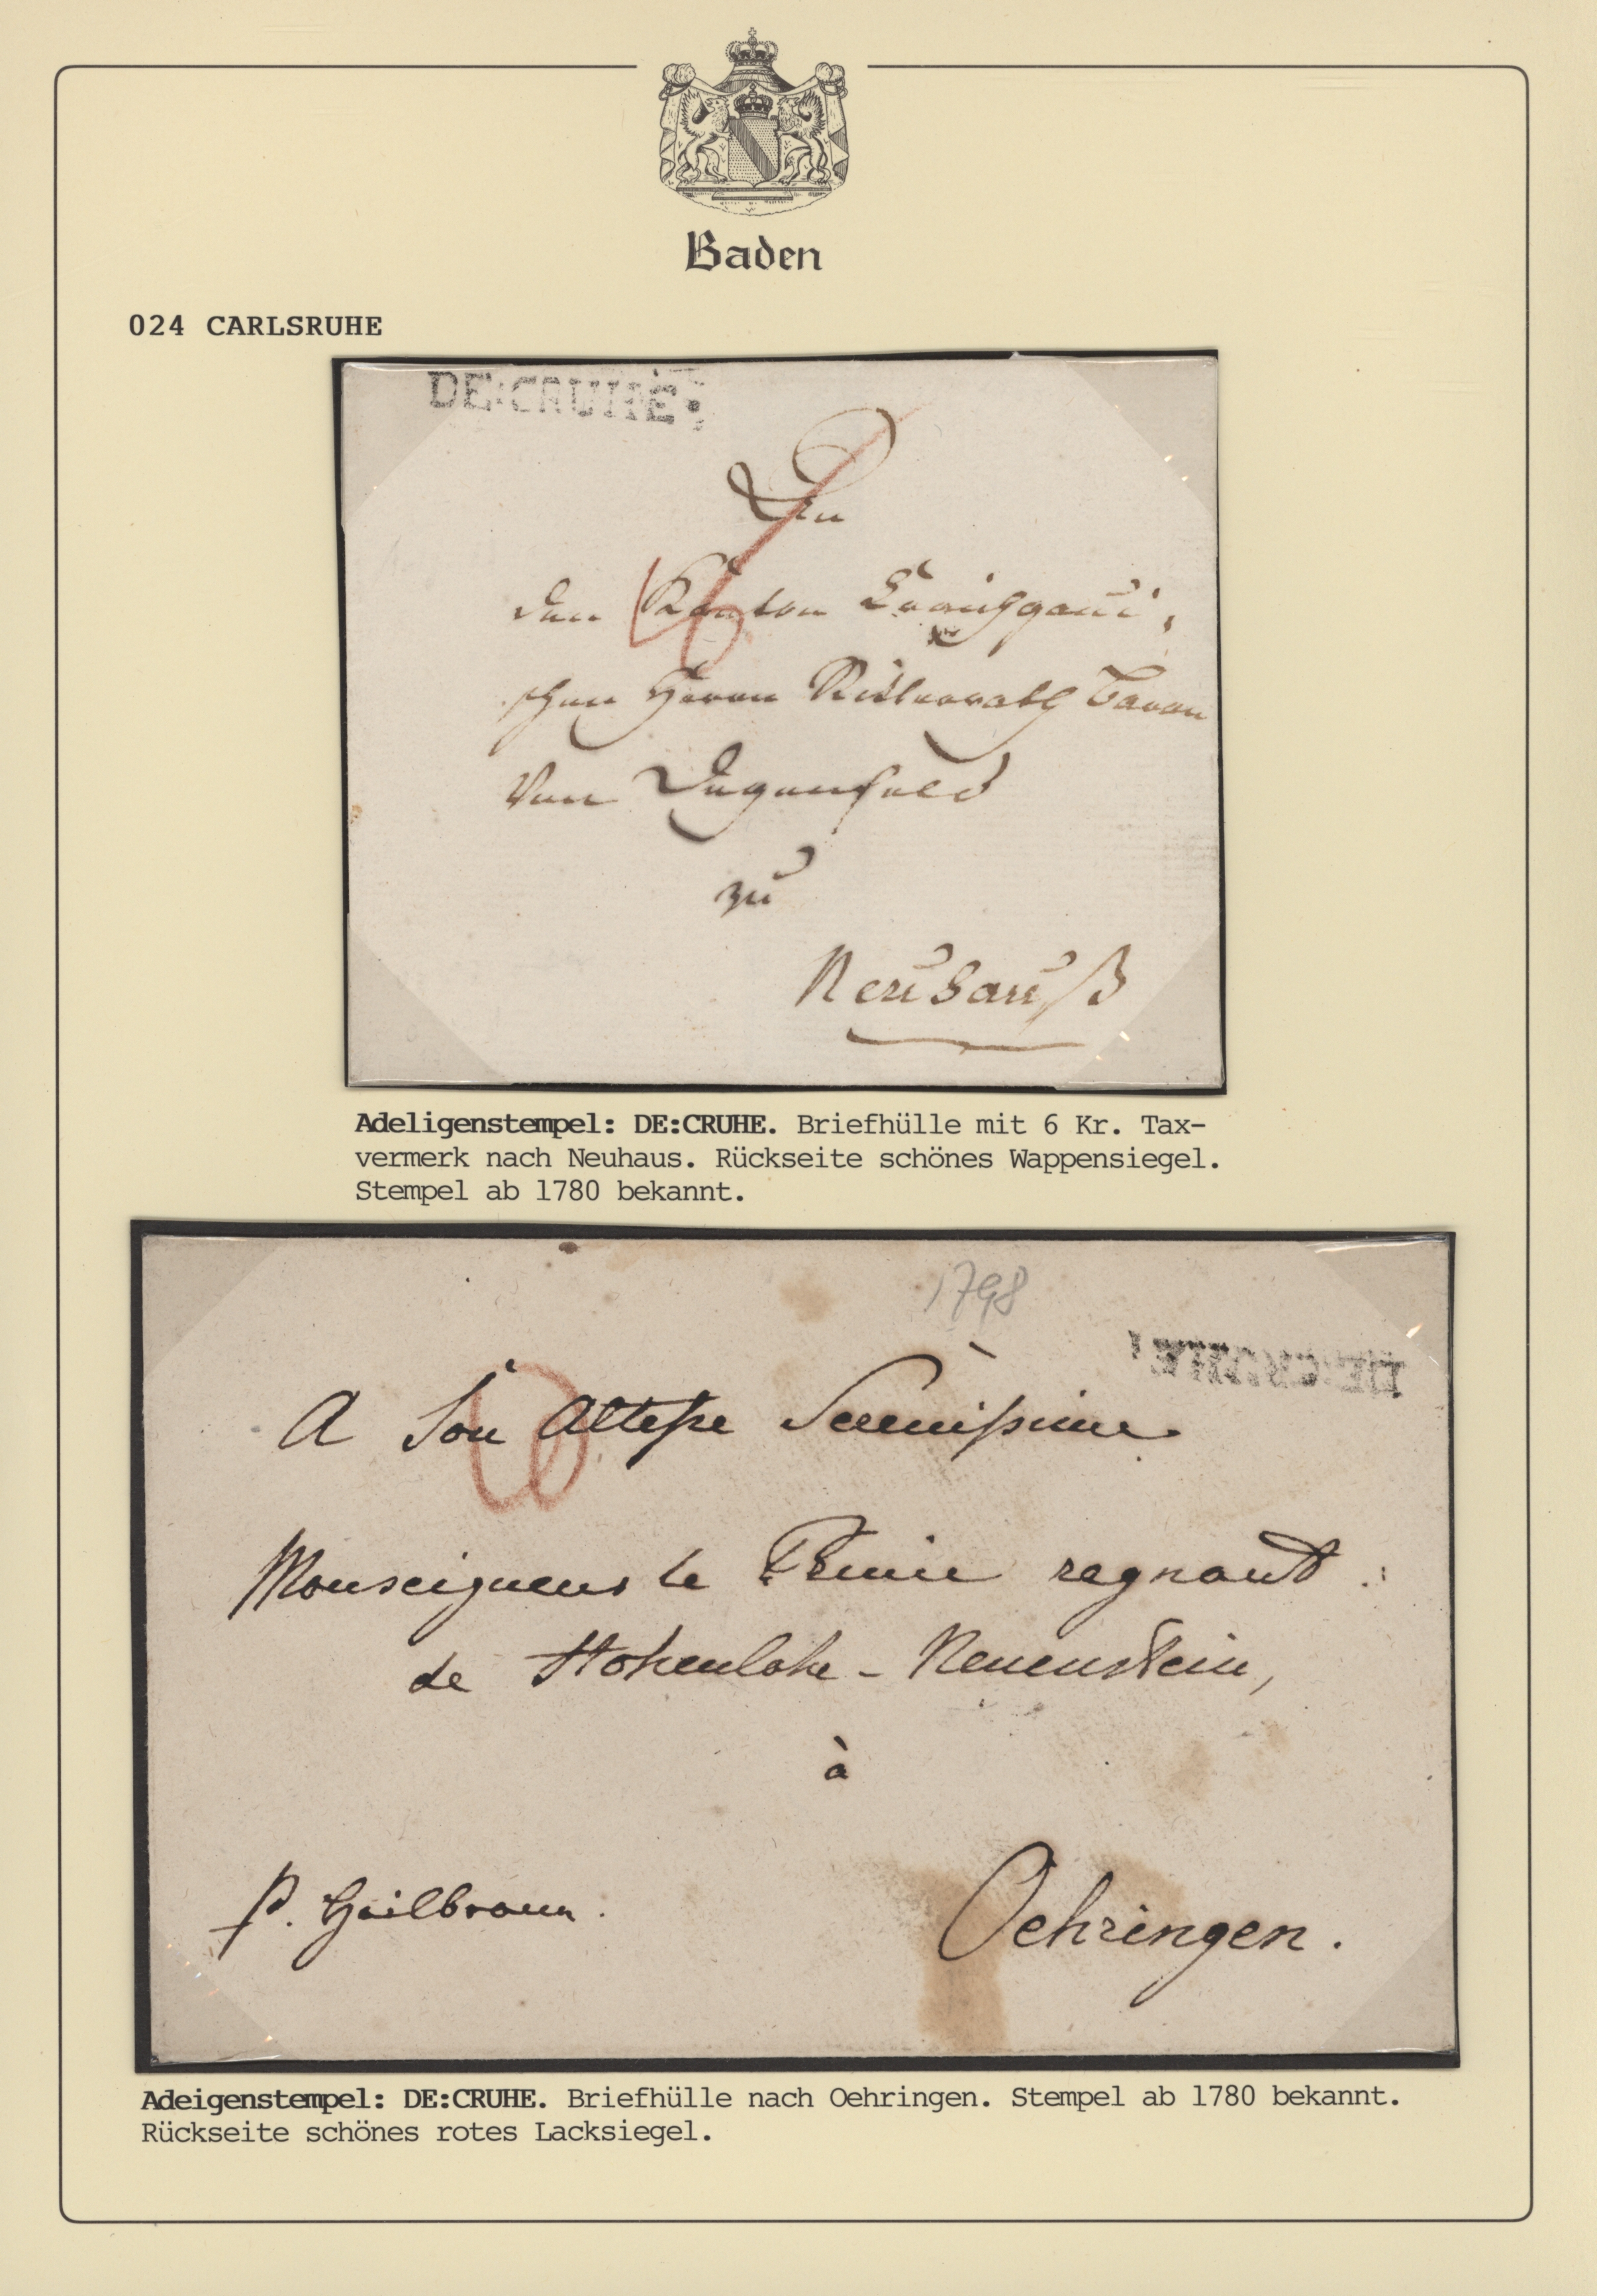 Baden
024 CARLSRUHE
DE:CRUHE:
Den
den Kanton Craichgaui,
schen Herrn Ritterrath Baron
Von Degenfeld
zu
Neuhauß
6
Adeligenstempel: DE:CRUHE. Briefhülle mit 6 Kr. Tax-
vermerk nach Neuhaus. Rückseite schönes Wappensiegel.
Stempel ab 1780 bekannt.
1798
DE:CRUHE:
A Son Altesse Serenissime
Monseigneur le Prince regnant
de Hohenlohe-Neuenstein,
à
p. Heilbronn.
Oehringen.
Adeigenstempel: DE:CRUHE. Briefhülle nach Oehringen. Stempel ab 1780 bekannt.
Rückseite schönes rotes Lacksiegel.